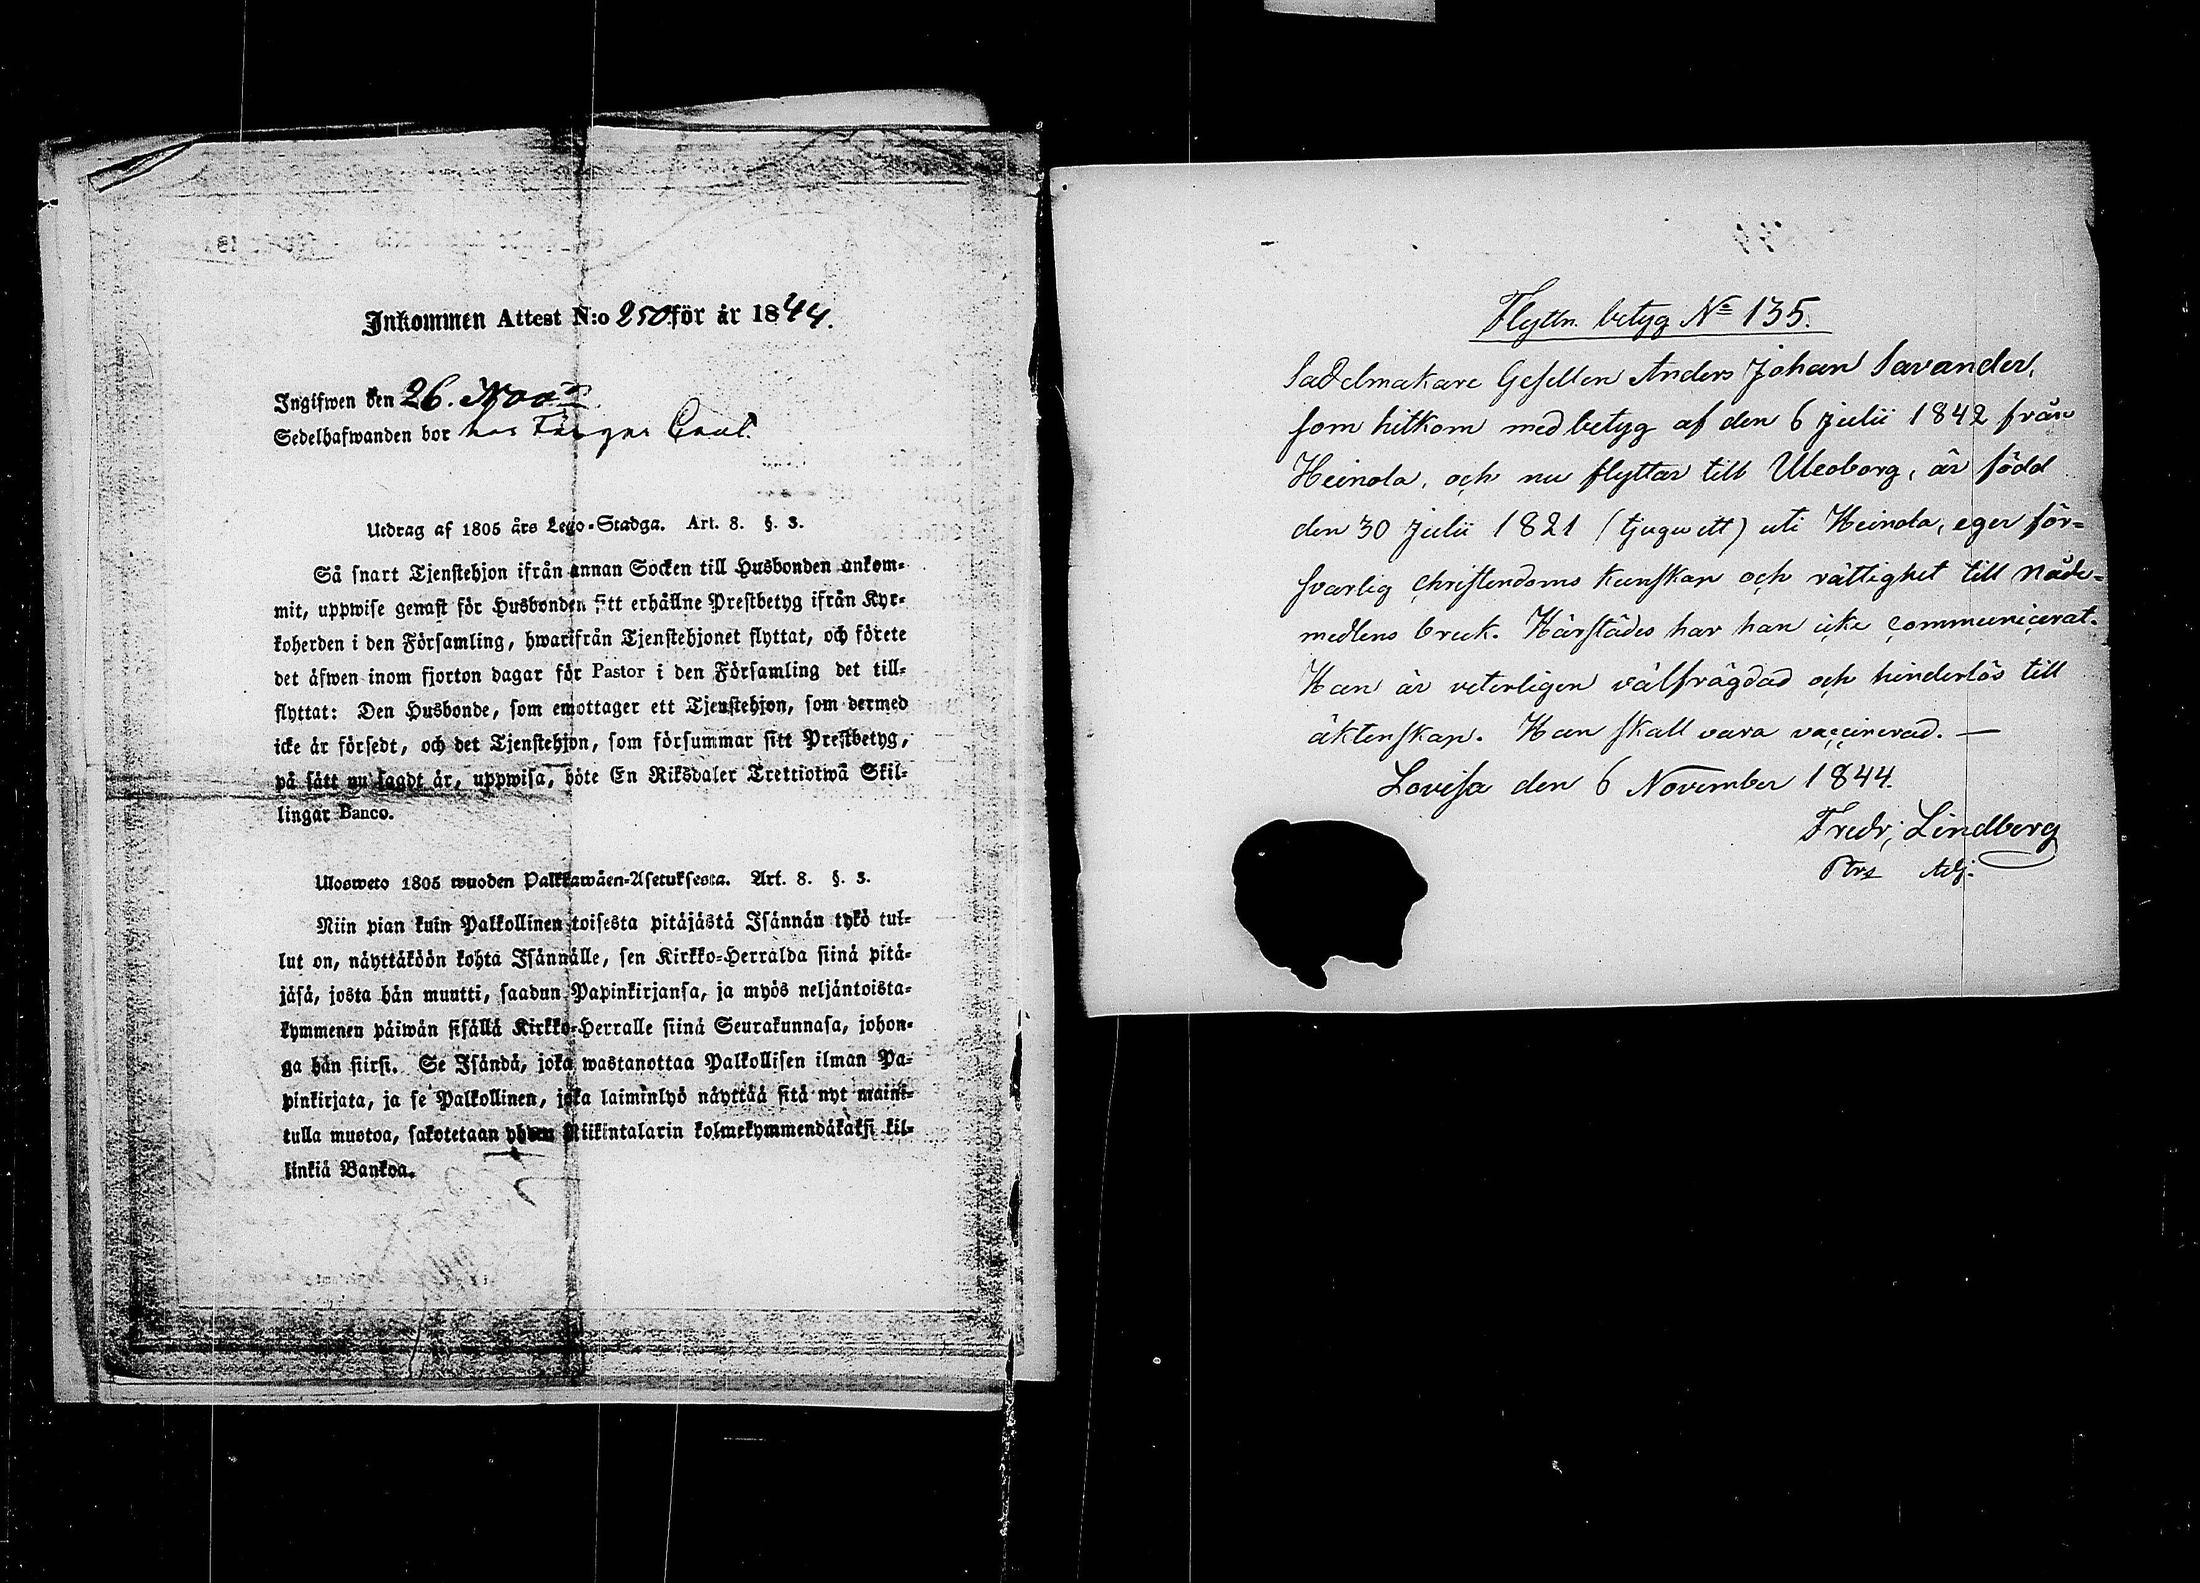 Inkommen Attest N:o 250 för år 1844.
Ingifwen den 26. Nov
Sedelhafwanden bor hos
Utdrag af 1805 års Lego-Stadga. Art. 8. §. 3.
Så snart Tjenstehjon ifrån annan Socken till Husbonden ankom-
mit, uppwise genast för Husbonden sitt erhållne Prestbetyg ifrån Kyr-
koherden i den Församling, hwarifrån Tjenstehjonet flyttat, och förete
det äfwen inom fjorton dagar för Pastor i den Församling det till-
flyttat: Den Husbonde, som emottager ett Tjenstehjon, som dermed
icke är försedt, och det Tjenstehjon, som försummar sitt Prestbetyg,
på sätt nu sagdt är, uppwisa, böte En Riksdaler Trettiotwå Skil-
lingar Banco.
Ulosweto 1805 wuoden Palkkawäen-Asetuksesta. Art. 8. §. 3.
Niin pian kuin Palkollinen toisesta pitäjästä Isännän tykö tul-
lut on, näyttäköön kohta Isännälle, sen Kirkko-Herralda siinä pitä-
jäsä, josta hän muutti, saadun Papinkirjansa, ja myös neljäntoista-
kymmenen päiwän sisällä Kirkko-Herralle siinä Seurakunnasa, johon-
ga hän siirsi. Se Isändä, joka wastanottaa Palkollisen ilman Pa-
pinkirjata, ja se Palkollinen, joka laiminlyö näyttää sitä nyt maini-
tulla muotoa, sakotetaan yhden Riikintalarin kolmekymmendäkaksi kil-
linkiä Bankoa.
Flyttn. betyg No 135.
Sadelmakare Gesellen Anders Johan Savander,
som hitkom med betyg af den 6 Julii 1842 från
Heinola, och nu flyttar till Uleoborg, är född
den 30 Julii 1821 (tjugu ett) uti Heinola, eger för-
svarlig Christendoms kunskap och rättighet till Nåde-
medlens bruk. Härstädes har han icke communicerat.
Han är veterligen välfrägdad och hinderlös till
äktenskap. Han skall vara vaccinerad. —
Lovisa den 6 November 1844.
Fredr. Lindberg
Adj.